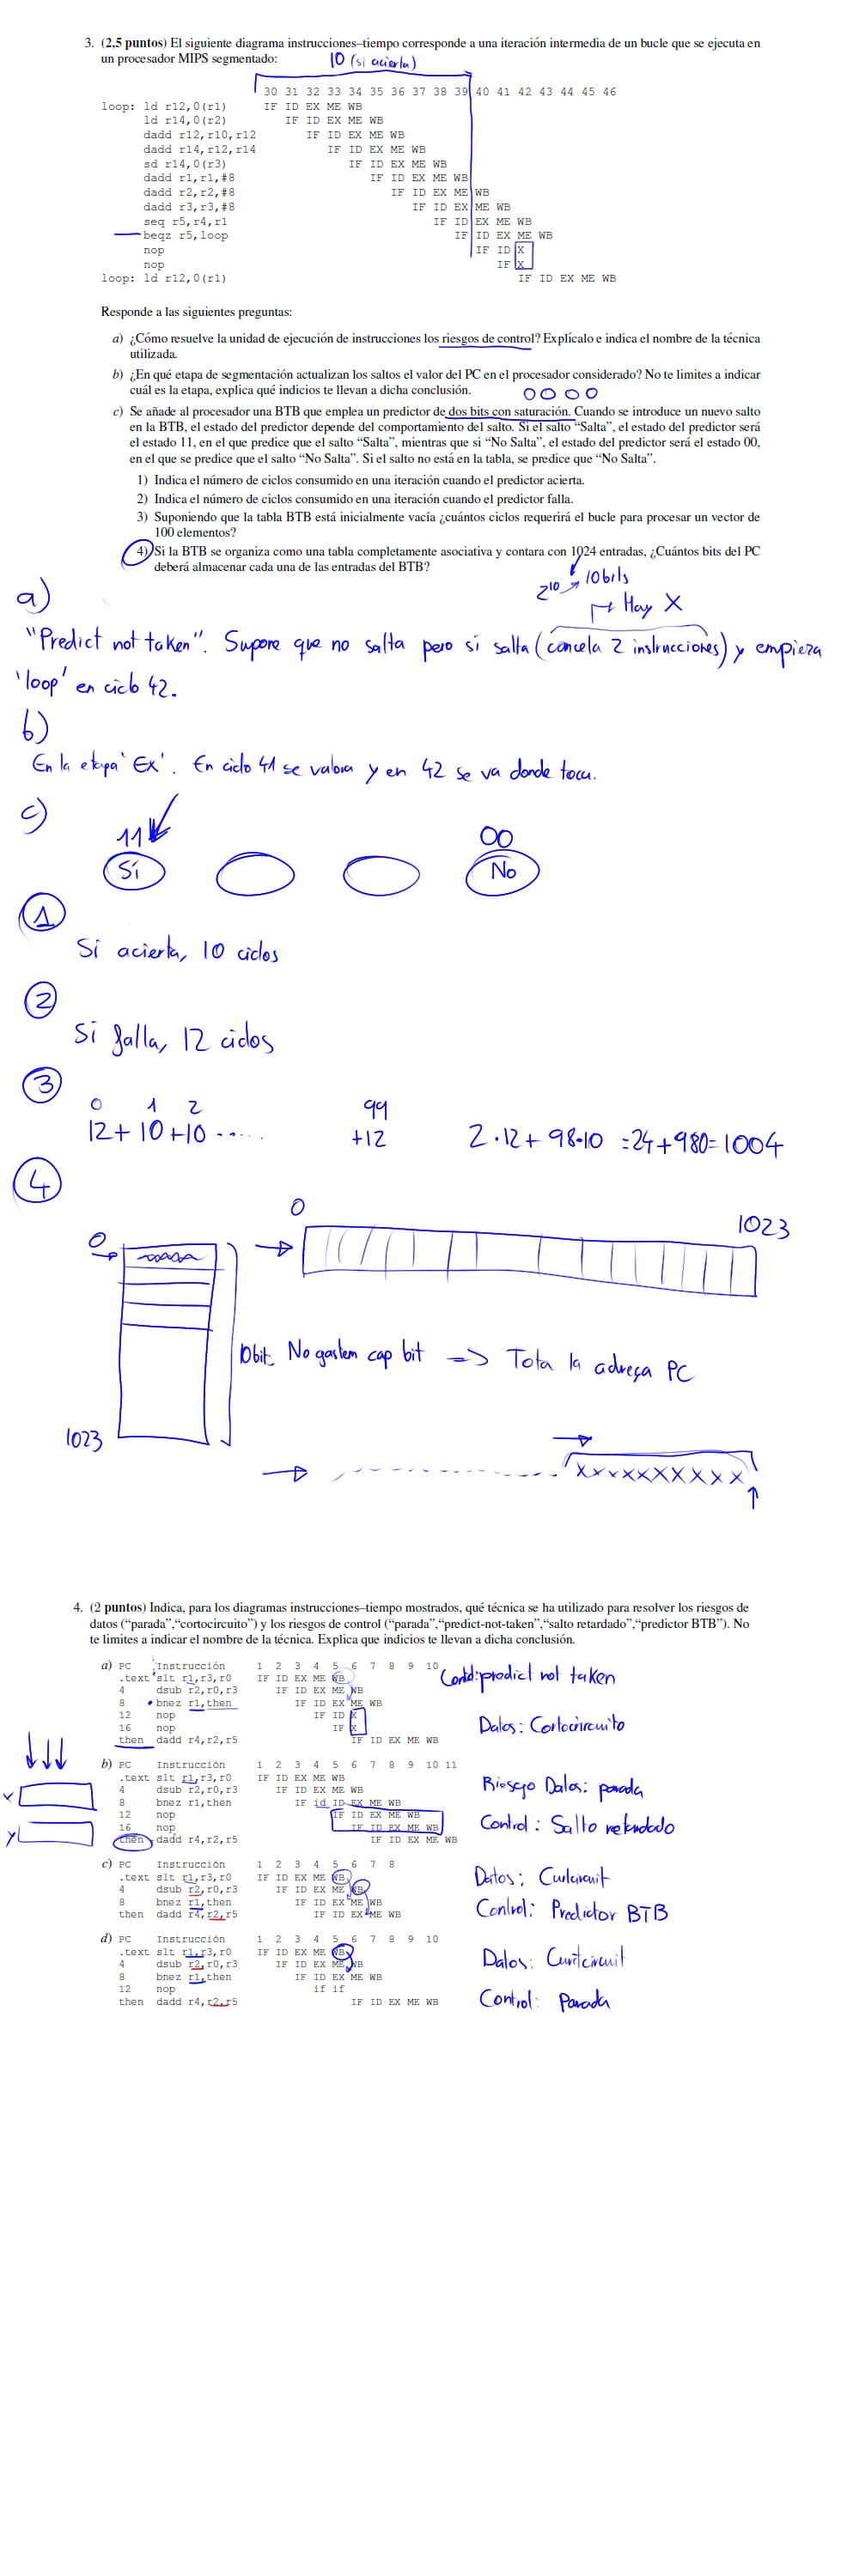 3. (2,5 puntos) El siguiente diagrama instrucciones–tiempo corresponde a una iteración intermedia de un bucle que se ejecuta en
un procesador MIPS segmentado:
10 (si acierta)
30 31 32 33 34 35 36 37 38 39 40 41 42 43 44 45 46
loop: ld r12,0(r1) IF ID EX ME WB
ld r14,0(r2) IF ID EX ME WB
dadd r12,r10,r12 IF ID EX ME WB
dadd r14,r12,r14 IF ID EX ME WB
sd r14,0(r3) IF ID EX ME WB
dadd r1,r1,#8 IF ID EX ME WB
dadd r2,r2,#8 IF ID EX ME WB
dadd r3,r3,#8 IF ID EX ME WB
seq r5,r4,r1 IF ID EX ME WB
beqz r5,loop IF ID EX ME WB
nop IF ID X
nop IF X
loop: ld r12,0(r1) IF ID EX ME WB
Responde a las siguientes preguntas:
a) ¿Cómo resuelve la unidad de ejecución de instrucciones los riesgos de control? Explícalo e indica el nombre de la técnica
utilizada.
b) ¿En qué etapa de segmentación actualizan los saltos el valor del PC en el procesador considerado? No te limites a indicar
cuál es la etapa, explica qué indicios te llevan a dicha conclusión.
c) Se añade al procesador una BTB que emplea un predictor de dos bits con saturación. Cuando se introduce un nuevo salto
en la BTB, el estado del predictor depende del comportamiento del salto. Si el salto “Salta”, el estado del predictor será
el estado 11, en el que predice que el salto “Salta”, mientras que si “No Salta”, el estado del predictor será el estado 00,
en el que se predice que el salto “No Salta”. Si el salto no está en la tabla, se predice que “No Salta”.
1) Indica el número de ciclos consumido en una iteración cuando el predictor acierta.
2) Indica el número de ciclos consumido en una iteración cuando el predictor falla.
3) Suponiendo que la tabla BTB está inicialmente vacía ¿cuántos ciclos requerirá el bucle para procesar un vector de
100 elementos?
4) Si la BTB se organiza como una tabla completamente asociativa y contara con 1024 entradas, ¿Cuántos bits del PC
deberá almacenar cada una de las entradas del BTB?
2^10 → 10 bits
a)
Hay X
"Predict not taken". Supone que no salta pero sí salta (cancela 2 instrucciones) y empieza
'loop' en ciclo 42.
b)
En la etapa 'EX'. En ciclo 41 se valora y en 42 se va donde toca.
c)
11 00
Sí No
1
Si acierta, 10 ciclos
2
Si falla, 12 ciclos
3
0 1 2 99
12 + 10 + 10 ...... +12 2·12 + 98·10 = 24 + 980 = 1004
4
0 1023
0
0bit. No gastem cap bit => Tota la adreça PC
1023
x x x x x x x x x x
4. (2 puntos) Indica, para los diagramas instrucciones–tiempo mostrados, qué técnica se ha utilizado para resolver los riesgos de
datos (“parada”,“cortocircuito”) y los riesgos de control (“parada”,“predict-not-taken”,“salto retardado”,“predictor BTB”). No
te limites a indicar el nombre de la técnica. Explica que indicios te llevan a dicha conclusión.
a) PC Instrucción 1 2 3 4 5 6 7 8 9 10
.text slt r1,r3,r0 IF ID EX ME WB
4 dsub r2,r0,r3 IF ID EX ME WB
8 bnez r1,then IF ID EX ME WB
12 nop IF ID X
16 nop IF X
then dadd r4,r2,r5 IF ID EX ME WB
Contol: predict not taken
Dalos: Cortocircuito
b) PC Instrucción 1 2 3 4 5 6 7 8 9 10 11
.text slt r1,r3,r0 IF ID EX ME WB
4 dsub r2,r0,r3 IF ID EX ME WB
8 bnez r1,then IF id ID EX ME WB
12 nop IF ID EX ME WB
16 nop IF ID EX ME WB
then dadd r4,r2,r5 IF ID EX ME WB
x
y
Riesgo Datos: parada
Control: Salto retardado
c) PC Instrucción 1 2 3 4 5 6 7 8
.text slt r1,r3,r0 IF ID EX ME WB
4 dsub r2,r0,r3 IF ID EX ME WB
8 bnez r1,then IF ID EX ME WB
then dadd r4,r2,r5 IF ID EX ME WB
Datos: Curtcircuit
Control: Predictor BTB
d) PC Instrucción 1 2 3 4 5 6 7 8 9 10
.text slt r1,r3,r0 IF ID EX ME WB
4 dsub r2,r0,r3 IF ID EX ME WB
8 bnez r1,then IF ID EX ME WB
12 nop if if
then dadd r4,r2,r5 IF ID EX ME WB
Dalos: Curtcircuit
Control: Parada